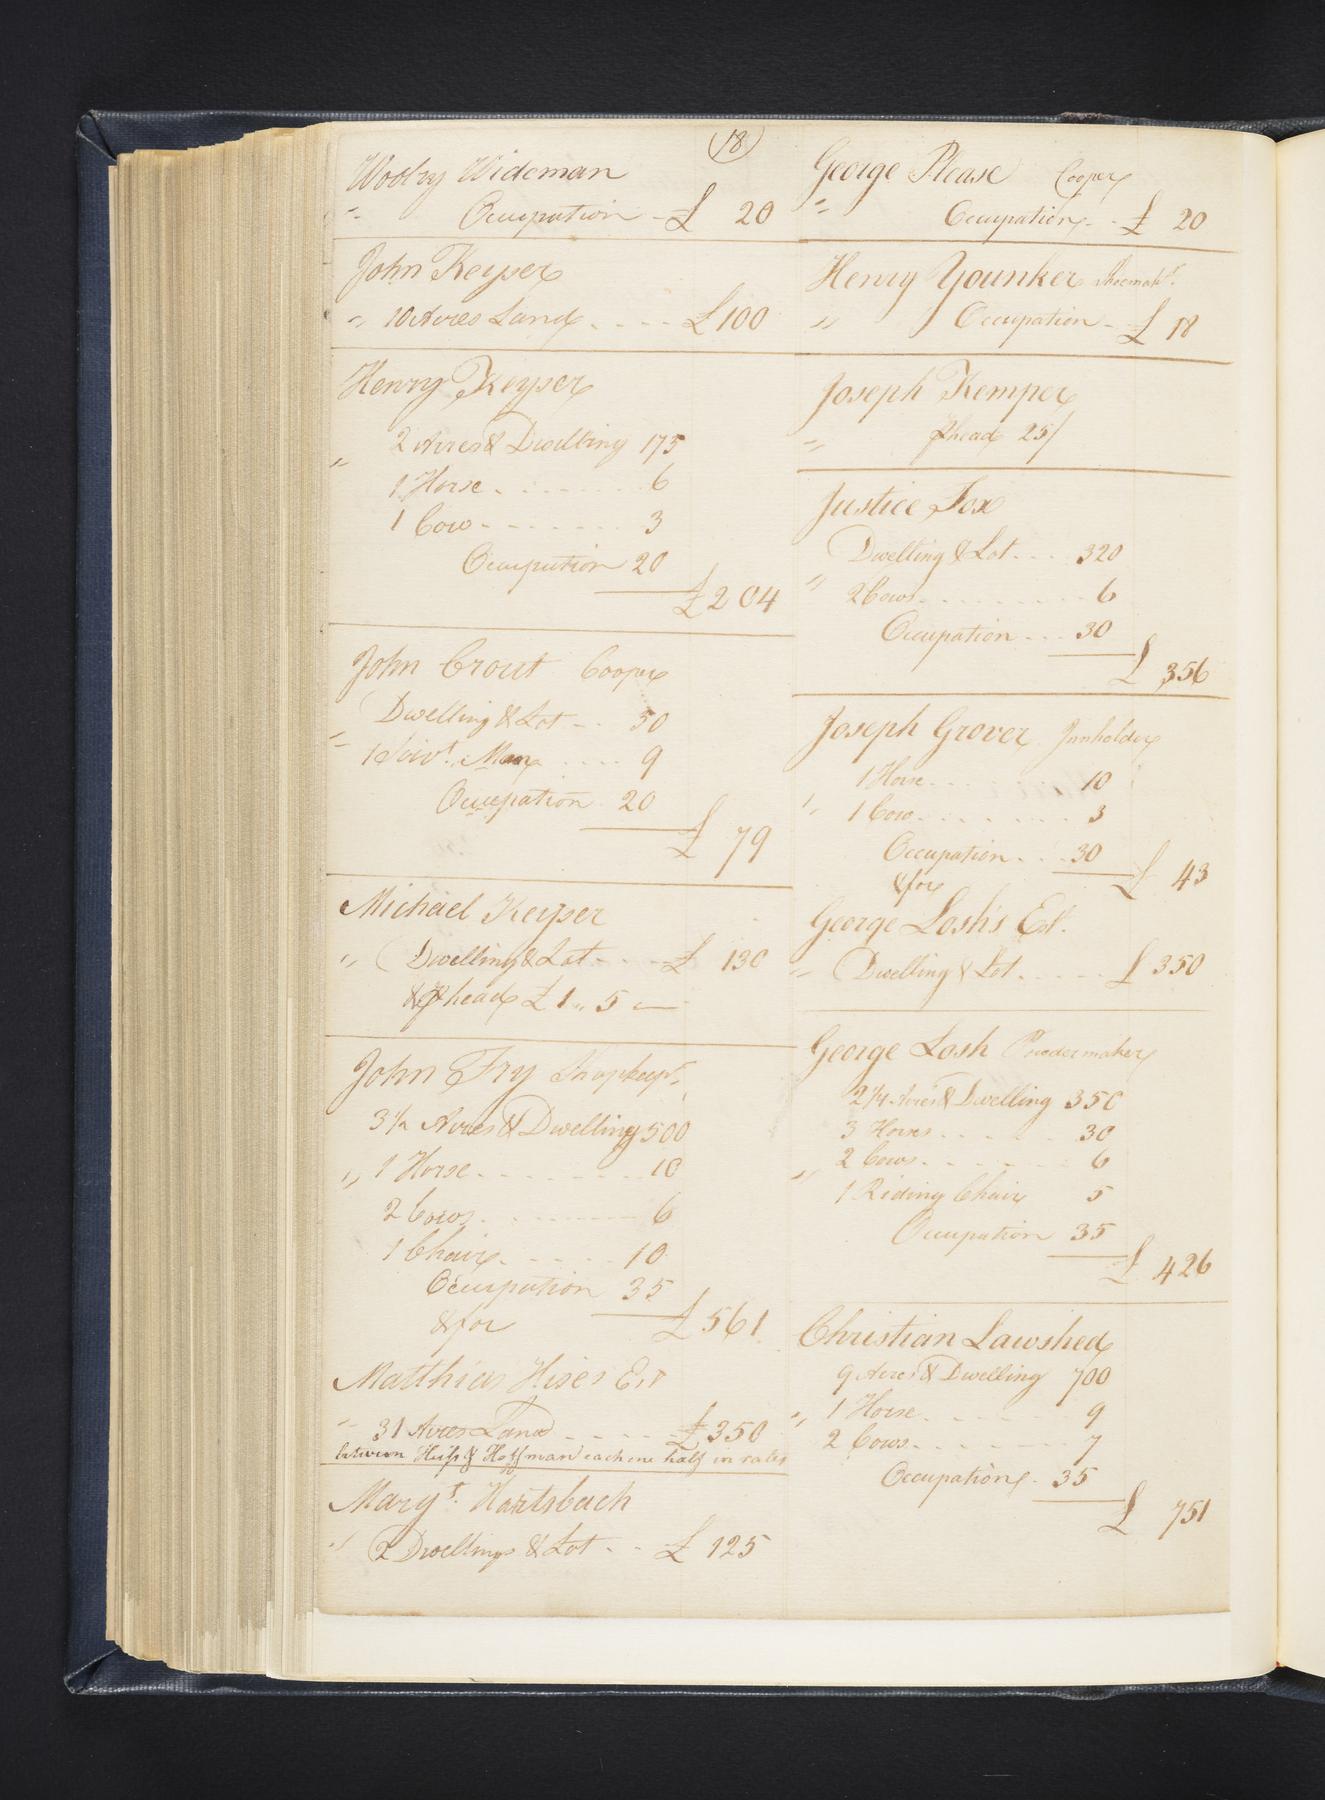 (18)
Woolry Wideman
" Occupation - £ 20
John Keyser
" 10 Acres Land . . . . £100
Henry Keyser
2 Acres & Dwelling 175
" 1 Horse . . . . . . 6
1 Cow - - - - - - 3
Occupation 20
£204
John Crout Cooper
Dwelling & Lot - - 50
" 1 Servt. Man . . . . 9
Occupation 20
£ 79
Michael Keyser
" Dwelling & Lot - - - £ 130
& P head £ 1 " 5 —
John Fry Shopkeepr.
3 1/2 Acres & Dwelling 500
" 1 Horse - - - - - - 10
2 Cows . . . . . 6
1 Chair . . . . . 10
Occupation 35
£561
& for
Matthias Hises Est
" 31 Acres Land - - - - £350
between Heiss & Hoffman each one half in rates
Margt. Hartsbach
" 2 Dwellings & Lot - - £ 125
George Please Cooper
" Occupation - - £ 20
Henry Younker Shoemakr.
" Occupation - £ 18
Joseph Kemper
" P head 25/
Justice Fox
Dwelling & Lot . . . 320
" 2 Cows . . . . . . . 6
Occupation - - - 30
£ 356
Joseph Grover Innholder
1 Horse . . . . . . 10
" 1 Cow . . . . . . . 3
Occupation . . . 30
£ 43
& for
George Losh's Est.
" Dwelling & Lot . . . . . £ 350
George Losh Powdermaker
2 1/4 Acres & Dwelling 350
3 Horses . . . . . 30
" 2 Cows . . . . . 6
1 Riding Chair 5
Occupation 35
£ 426
Christian Lawshed
9 Acres & Dwelling 700
" 1 Horse . . . . . . 9
2 Cows . . . . . . 7
Occupation . 35
£ 751